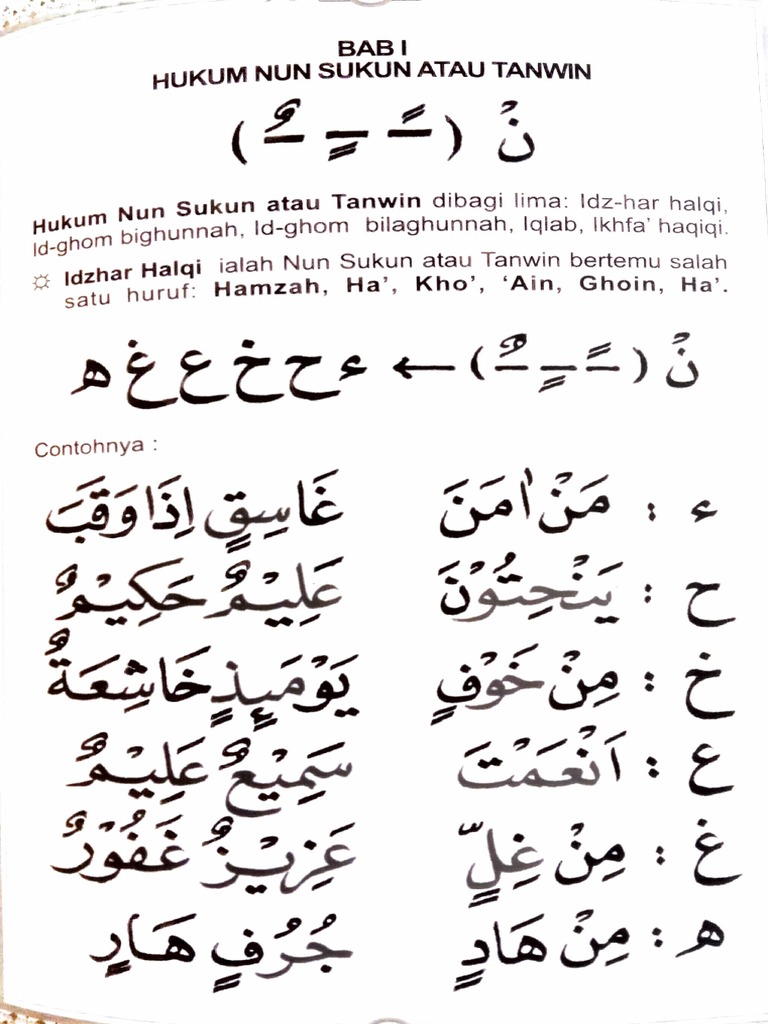 BAB I
HUKUM NUN SUKUN ATAU TANWIN
نْ ( ـًـ ـٍـ ـٌـ )
Hukum Nun Sukun atau Tanwin dibagi lima: Idz-har halqi,
Id-ghom bighunnah, Id-ghom bilaghunnah, Iqlab, Ikhfa' haqiqi.
☼ Idzhar Halqi ialah Nun Sukun atau Tanwin bertemu salah
satu huruf: Hamzah, Ha', Kho', 'Ain, Ghoin, Ha'.
نْ ( ـًـ ـٍـ ـٌـ ) ← ء ح خ ع غ ه
Contohnya :
ء : مَنْ اٰمَنَ غَاسِقٍ اِذَا وَقَبَ
ح : يَنْحِتُوْنَ عَلِيْمٌ حَكِيْمٌ
خ : مِنْ خَوْفٍ يَوْمَئِذٍ خَاشِعَةٌ
ع : اَنْعَمْتَ سَمِيْعٌ عَلِيْمٌ
غ : مِنْ غِلٍّ عَزِيْزٌ غَفُوْرٌ
ه : مِنْ هَادٍ جُرُفٍ هَارٍ